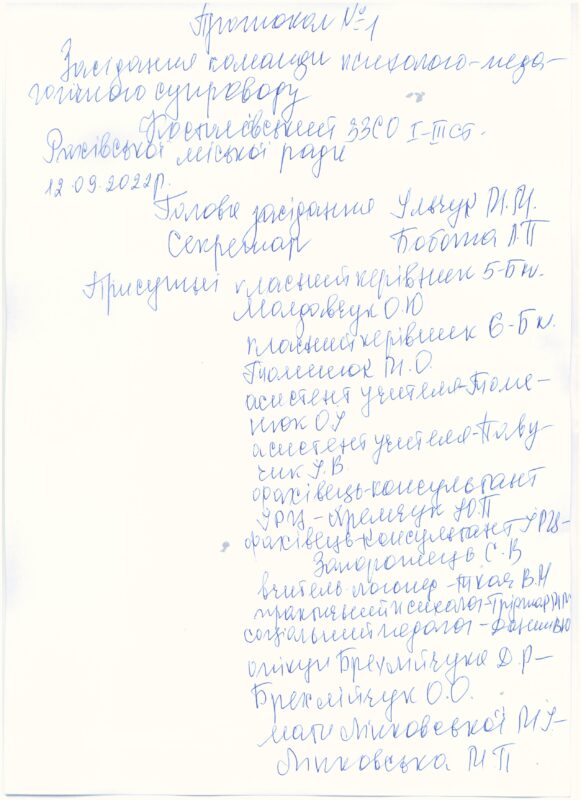 Протокол №1
Засідання команди психолого-педа-
гогічного супроводу
Костилівський ЗЗСО І-ІІІст.
Рахівської міської ради
12.09.2022р.
Голова засідання Ульчук М.М.
Секретар Бобота Л.П
Присутні класний керівник 5-Б кл.
Молдавчук О.Ю
класний керівник 6-Б кл.
Томенюк М.О.
асистент учителя-Томе-
нюк О
асистент учителя-Паву-
чик В.
фахівець-консультант
ІРЦ-Кремчук Ю.П
фахівець-консультант ІРЦ-
Запоронець С.В
вчитель-логопед-Ткач В.М
практичний психолог-
соціальний педагог-
опікун Брехлійчука Д.Р-
Брехлійчук О.О.
мати Линковської М
Линковська М П